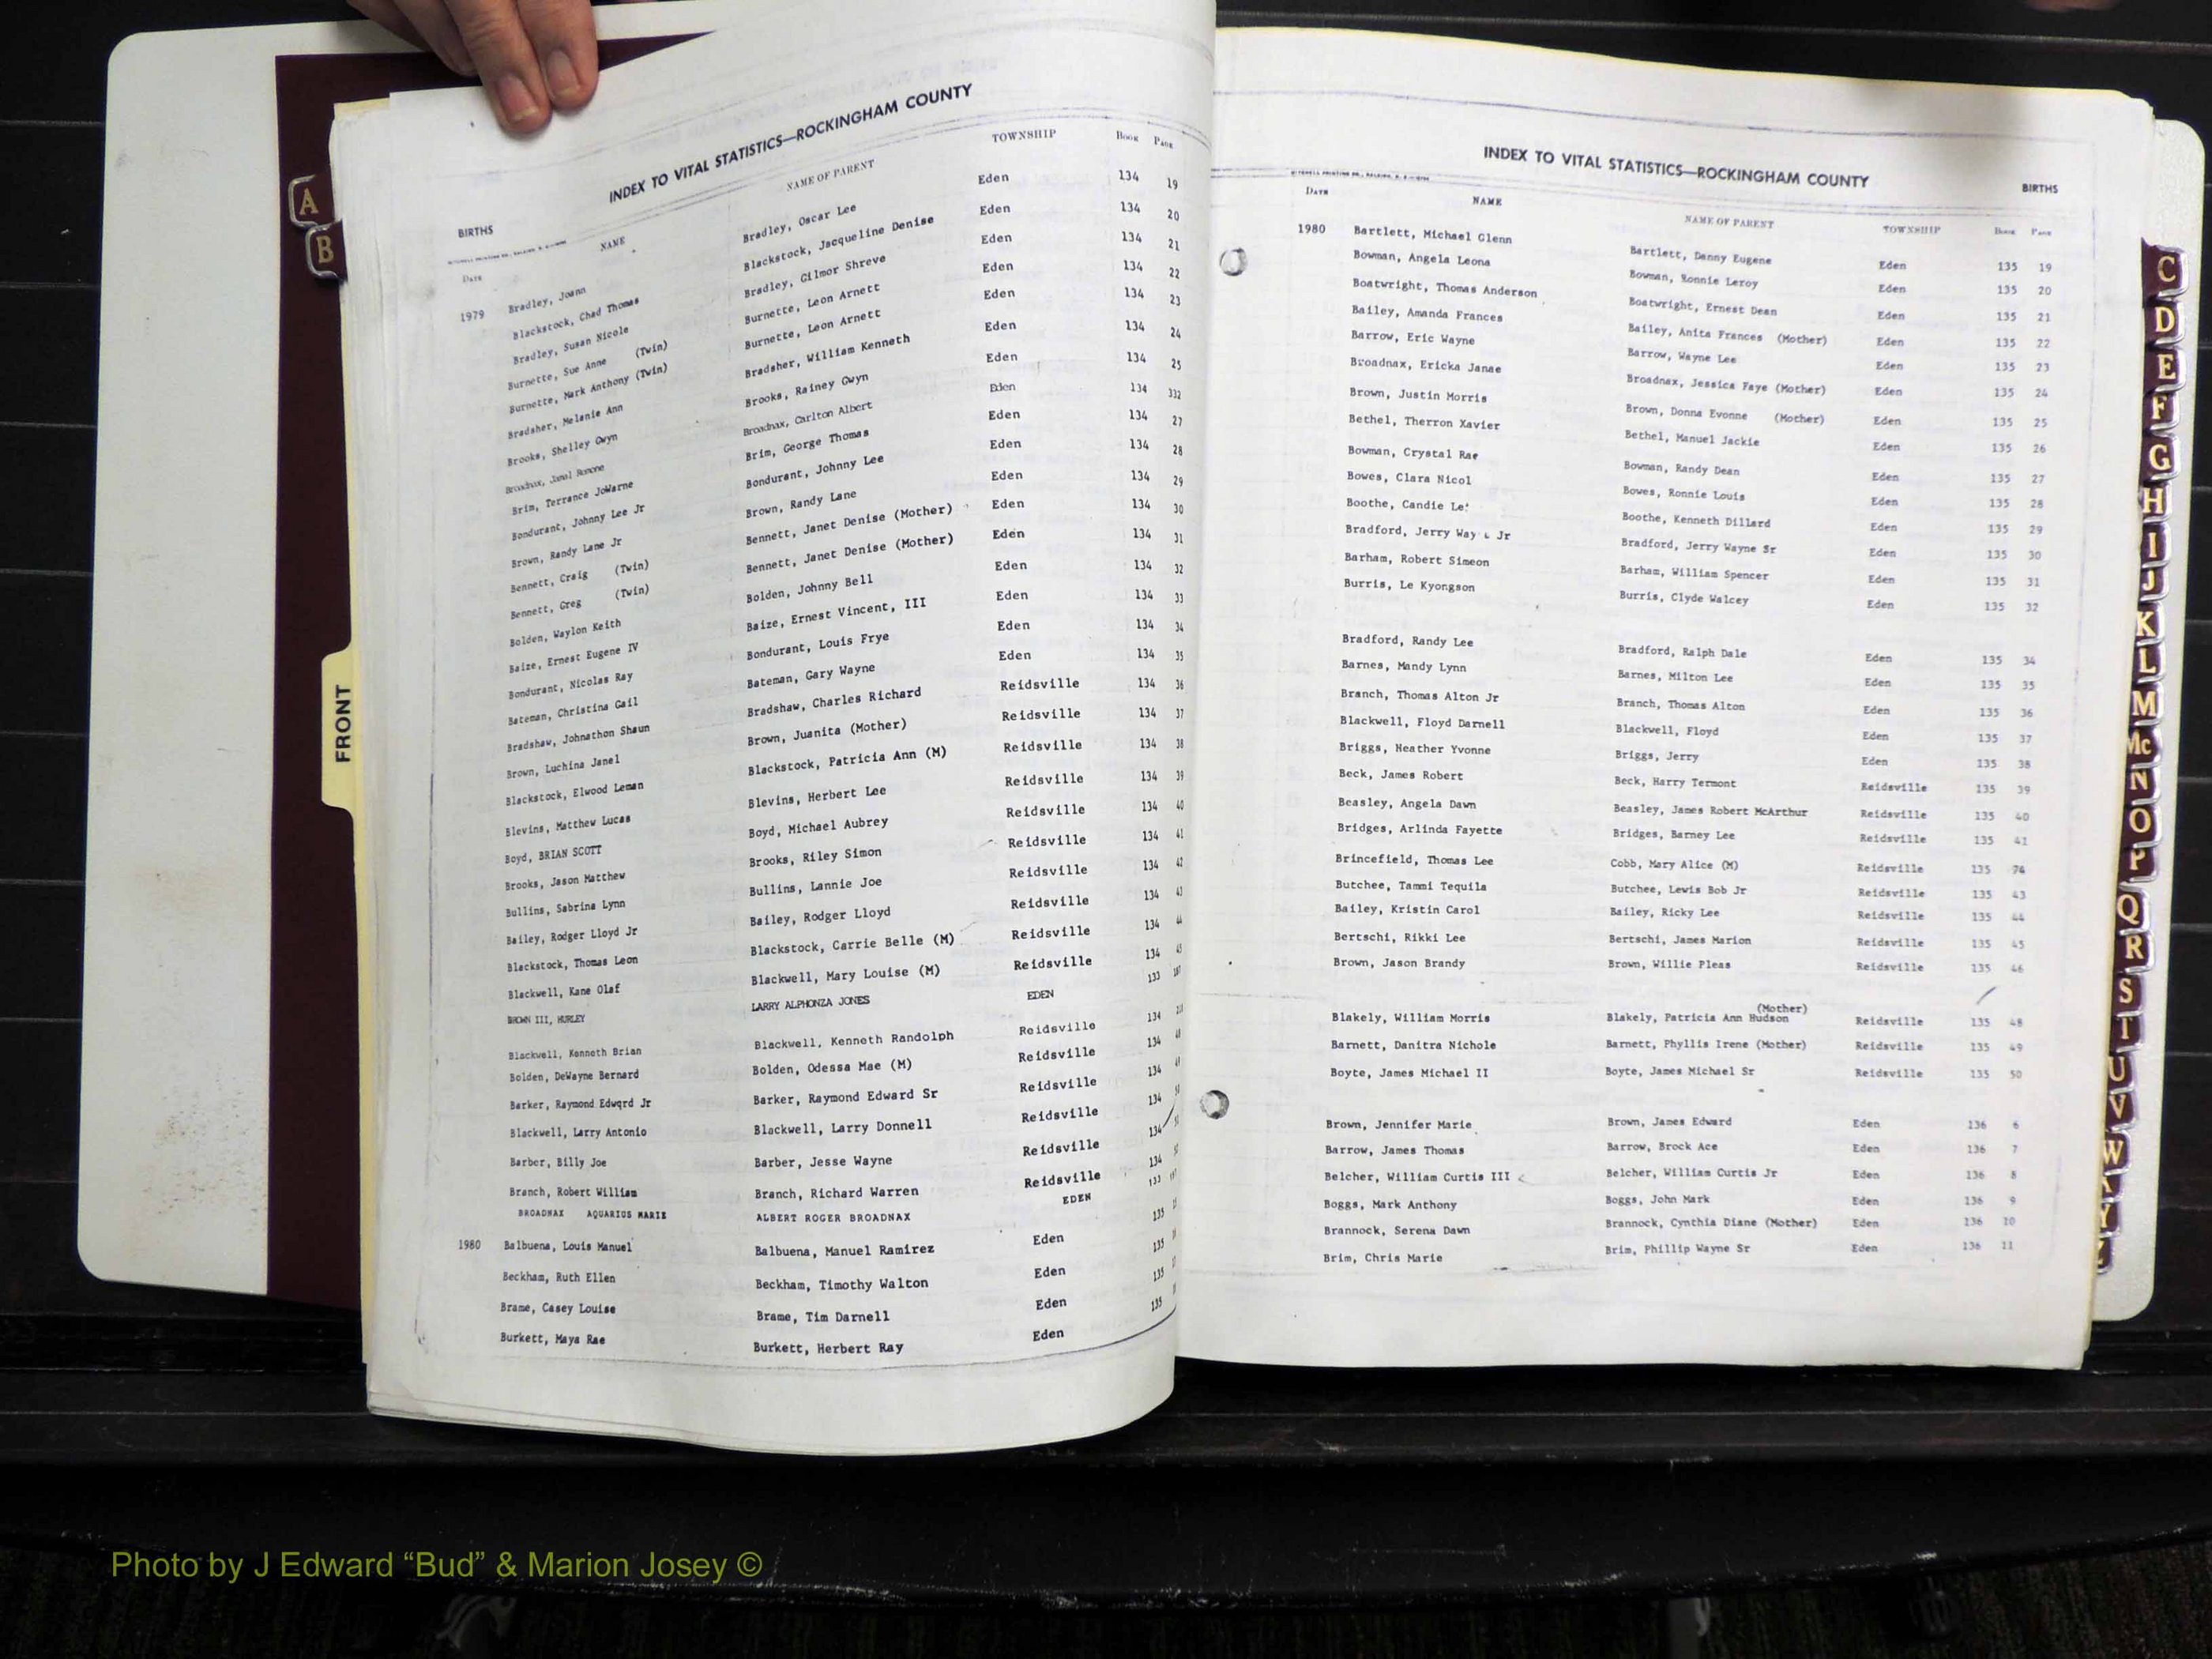 INDEX TO VITAL STATISTICS—ROCKINGHAM COUNTY
BIRTHS
DATE NAME NAME OF PARENT TOWNSHIP BOOK PAGE
1979 Bradley, Joann Bradley, Oscar Lee Eden 134 19
Blackstock, Chad Thomas Blackstock, Jacqueline Denise Eden 134 20
Bradley, Susan Nicole Bradley, Gilmor Shreve Eden 134 21
Burnette, Sue Anne (Twin) Burnette, Leon Arnett Eden 134 22
Burnette, Mark Anthony (Twin) Burnette, Leon Arnett Eden 134 23
Bradsher, Melanie Ann Bradsher, William Kenneth Eden 134 24
Brooks, Shelley Gwyn Brooks, Rainey Gwyn Eden 134 25
Broadnax, Jamal Romone Broadnax, Carlton Albert Eden 134 332
Brim, Terrance JoWarne Brim, George Thomas Eden 134 27
Bondurant, Johnny Lee Jr Bondurant, Johnny Lee Eden 134 28
Brown, Randy Lane Jr Brown, Randy Lane Eden 134 29
Bennett, Craig (Twin) Bennett, Janet Denise (Mother) Eden 134 30
Bennett, Greg (Twin) Bennett, Janet Denise (Mother) Eden 134 31
Bolden, Waylon Keith Bolden, Johnny Bell Eden 134 32
Baize, Ernest Eugene IV Baize, Ernest Vincent, III Eden 134 33
Bondurant, Nicolas Ray Bondurant, Louis Frye Eden 134 34
Bateman, Christina Gail Bateman, Gary Wayne Eden 134 35
Bradshaw, Johnathon Shaun Bradshaw, Charles Richard Reidsville 134 36
Brown, Luchina Janel Brown, Juanita (Mother) Reidsville 134 37
Blackstock, Elwood Leman Blackstock, Patricia Ann (M) Reidsville 134 38
Blevins, Matthew Lucas Blevins, Herbert Lee Reidsville 134 39
Boyd, BRIAN SCOTT Boyd, Michael Aubrey Reidsville 134 40
Brooks, Jason Matthew Brooks, Riley Simon Reidsville 134 41
Bullins, Sabrina Lynn Bullins, Lannie Joe Reidsville 134 42
Bailey, Rodger Lloyd Jr Bailey, Rodger Lloyd Reidsville 134 43
Blackstock, Thomas Leon Blackstock, Carrie Belle (M) Reidsville 134 44
Blackwell, Kane Olaf Blackwell, Mary Louise (M) Reidsville 134 45
BROWN III, HURLEY LARRY ALPHONZA JONES EDEN 133
Blackwell, Kenneth Brian Blackwell, Kenneth Randolph Reidsville 134
Bolden, DeWayne Bernard Bolden, Odessa Mae (M) Reidsville 134
Barker, Raymond Edwqrd Jr Barker, Raymond Edward Sr Reidsville 134
Blackwell, Larry Antonio Blackwell, Larry Donnell Reidsville 134
Barber, Billy Joe Barber, Jesse Wayne Reidsville 134
Branch, Robert William Branch, Richard Warren Reidsville 134
BROADNAX AQUARIUS MARIE ALBERT ROGER BROADNAX EDEN 133
1980 Balbuena, Louis Manuel Balbuena, Manuel Ramirez Eden 135
Beckham, Ruth Ellen Beckham, Timothy Walton Eden 135
Brame, Casey Louise Brame, Tim Darnell Eden 135
Burkett, Maya Rae Burkett, Herbert Ray Eden 135
INDEX TO VITAL STATISTICS—ROCKINGHAM COUNTY
BIRTHS
DATE NAME NAME OF PARENT TOWNSHIP BOOK PAGE
1980 Bartlett, Michael Glenn Bartlett, Danny Eugene Eden 135 19
Bowman, Angela Leona Bowman, Ronnie Leroy Eden 135 20
Boatwright, Thomas Anderson Boatwright, Ernest Dean Eden 135 21
Bailey, Amanda Frances Bailey, Anita Frances (Mother) Eden 135 22
Barrow, Eric Wayne Barrow, Wayne Lee Eden 135 23
Broadnax, Ericka Janae Broadnax, Jessica Faye (Mother) Eden 135 24
Brown, Justin Morris Brown, Donna Evonne (Mother) Eden 135 25
Bethel, Therron Xavier Bethel, Manuel Jackie Eden 135 26
Bowman, Crystal Rae Bowman, Randy Dean Eden 135 27
Bowes, Clara Nicol Bowes, Ronnie Louis Eden 135 28
Boothe, Candie Boothe, Kenneth Dillard Eden 135 29
Bradford, Jerry Jr Bradford, Jerry Wayne Sr Eden 135 30
Barham, Robert Simeon Barham, William Spencer Eden 135 31
Burris, Le Kyongson Burris, Clyde Walcey Eden 135 32
Bradford, Randy Lee Bradford, Ralph Dale Eden 135 34
Barnes, Mandy Lynn Barnes, Milton Lee Eden 135 35
Branch, Thomas Alton Jr Branch, Thomas Alton Eden 135 36
Blackwell, Floyd Darnell Blackwell, Floyd Eden 135 37
Briggs, Heather Yvonne Briggs, Jerry Eden 135 38
Beck, James Robert Beck, Harry Termont Reidsville 135 39
Beasley, Angela Dawn Beasley, James Robert McArthur Reidsville 135 40
Bridges, Arlinda Fayette Bridges, Barney Lee Reidsville 135 41
Brincefield, Thomas Lee Cobb, Mary Alice (M) Reidsville 135 74
Butchee, Tammi Tequila Butchee, Lewis Bob Jr Reidsville 135 43
Bailey, Kristin Carol Bailey, Ricky Lee Reidsville 135 44
Bertschi, Rikki Lee Bertschi, James Marion Reidsville 135 45
Brown, Jason Brandy Brown, Willie Pleas Reidsville 135 46
(Mother)
Blakely, William Morris Blakely, Patricia Ann Hudson Reidsville 135 48
Barnett, Danitra Nichole Barnett, Phyllis Irene (Mother) Reidsville 135 49
Boyte, James Michael II Boyte, James Michael Sr Reidsville 135 50
Brown, Jennifer Marie Brown, James Edward Eden 136 6
Barrow, James Thomas Barrow, Brock Ace Eden 136 7
Belcher, William Curtis III Belcher, William Curtis Jr Eden 136 8
Boggs, Mark Anthony Boggs, John Mark Eden 136 9
Brannock, Serena Dawn Brannock, Cynthia Diane (Mother) Eden 136 10
Brim, Chris Marie Brim, Phillip Wayne Sr Eden 136 11
A
B
FRONT
C
D
E
F
G
H
I
J
K
L
M
Mc
N
O
P
Q
R
S
T
U
V
W
Y
Photo by J Edward “Bud” & Marion Josey ©